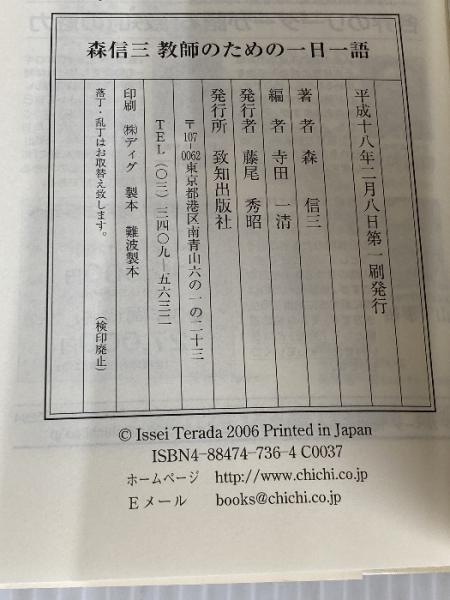 森信三 教師のための一日一語
平成十八年二月八日第一刷発行
著者 森 信三
編者 寺田 一清
発行者 藤尾 秀昭
発行所 致知出版社
〒107-0062 東京都港区南青山六の一の二十三
TEL(〇三)三四〇九―五六三二
印刷 ㈱ディグ 製本 難波製本
落丁・乱丁はお取替え致します。 (検印廃止)
© Issei Terada 2006 Printed in Japan
ISBN4-88474-736-4 C0037
ホームページ http://www.chichi.co.jp
Eメール books@chichi.co.jp